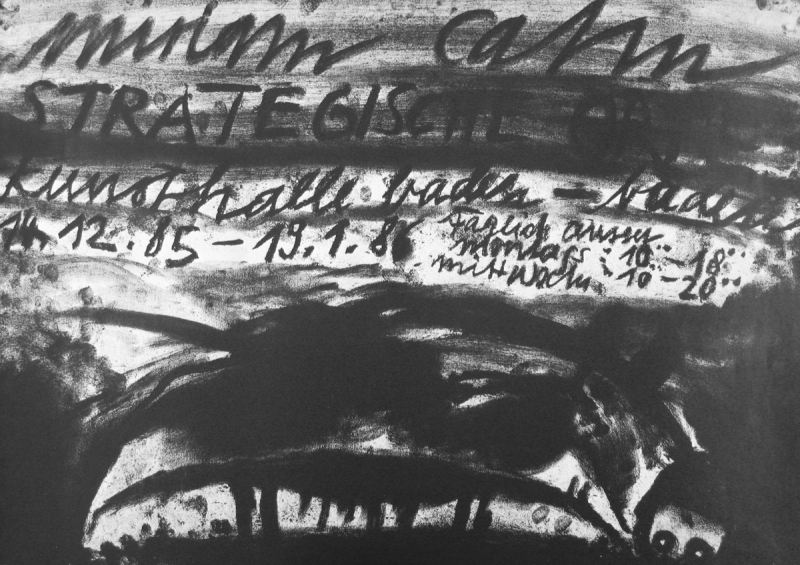 miriam cahn
STRATEGISCHE
kunsthalle baden-baden
14.12.85 – 19.1.86
täglich ausser
montags : 10°° – 18°°
mittwoch : 10 – 20°°